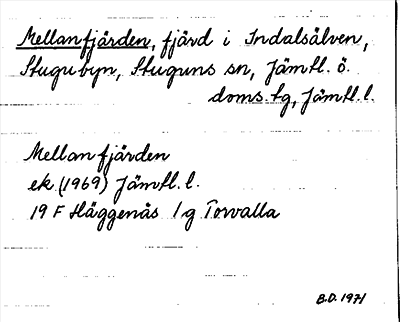 Mellanfjärden, fjärd i Indalsälven,
Stugubyn, Stuguns sn, Jämtl. ö.
doms.tg, Jämtl.l.
Mellanfjärden
ek (1969) Jämtl.l.
19 F Häggenås 1g Torvalla
B.D. 1971